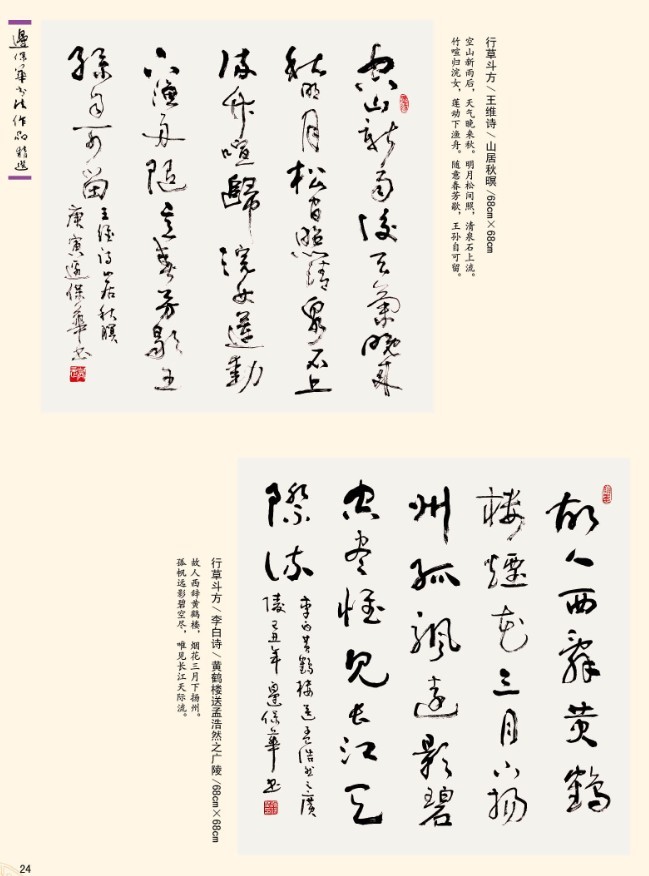 邊保華书法作品精選
行草斗方/王维诗/山居秋暝/68cm×68cm
空山新雨后，天气晚来秋。明月松间照，清泉石上流。
竹喧归浣女，莲动下渔舟。随意春芳歇，王孙自可留。
空山新雨後天氣晚来
秋明月松间照清泉石上
流竹喧歸浣女蓮動
下渔舟随意春芳歇王
孫自可留
王维诗山居秋暝
庚寅邊保華书
故人西辞黄鶴
楼煙花三月下扬
州孤帆遠影碧
空尽惟见长江天
際流
李白黄鶴楼送孟浩然之廣
陵己丑年邊保華书
行草斗方/李白诗/黄鹤楼送孟浩然之广陵/68cm×68cm
故人西辞黄鹤楼，烟花三月下扬州。
孤帆远影碧空尽，唯见长江天际流。
24